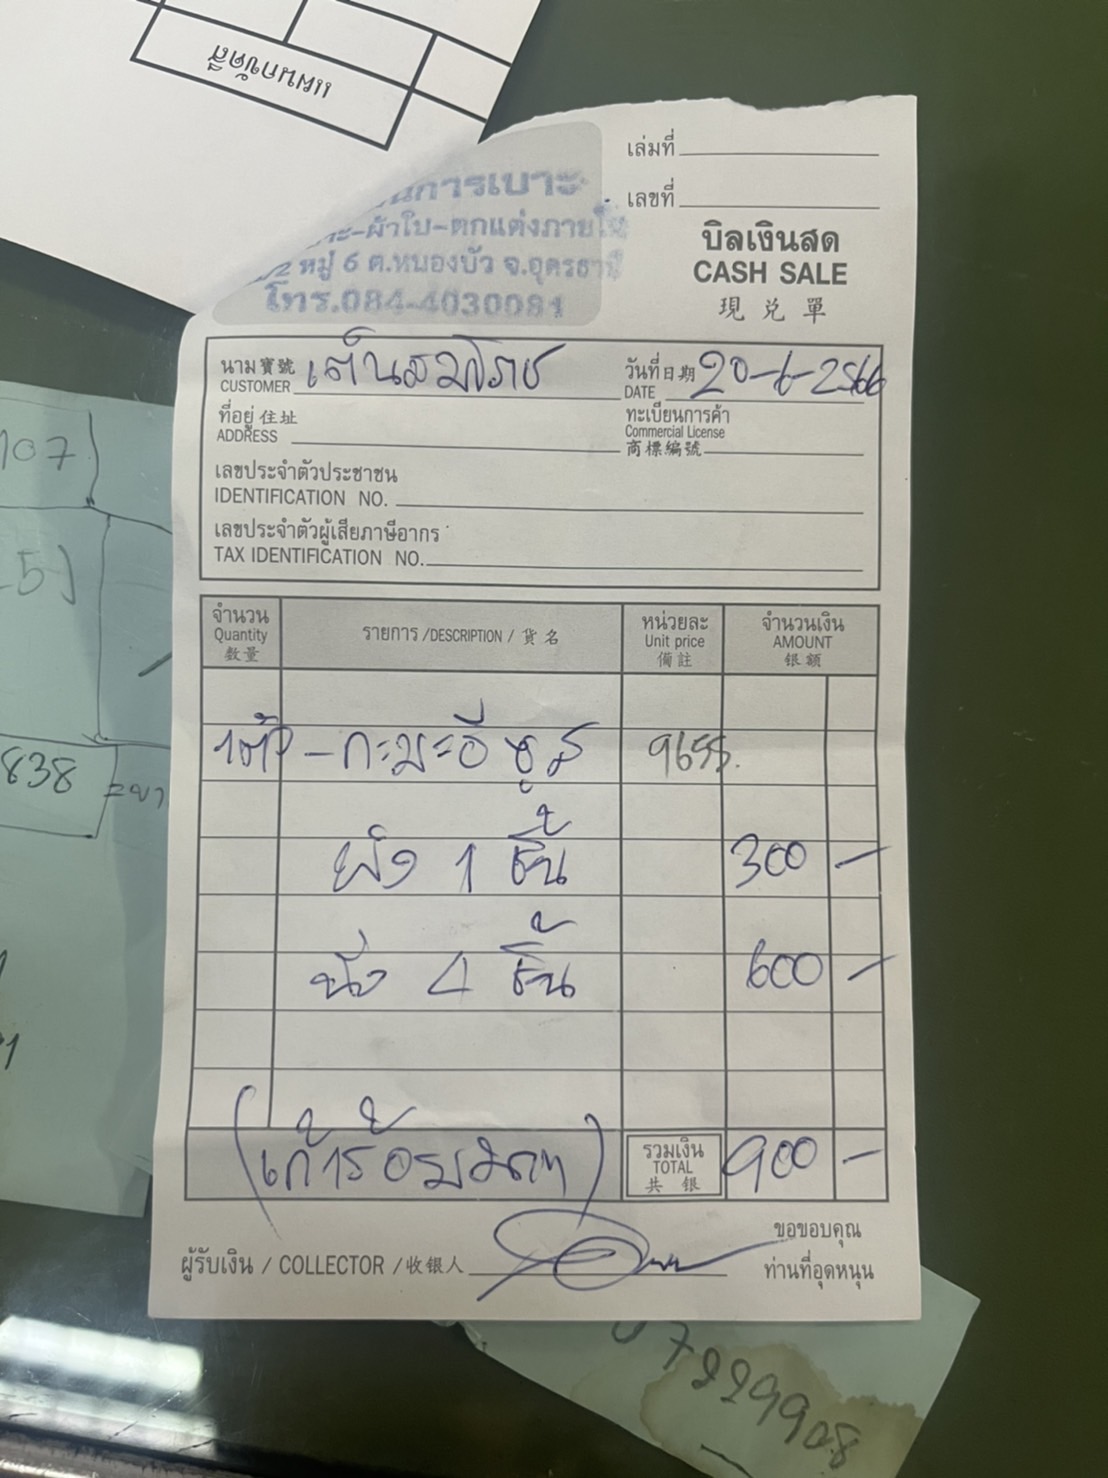 แผนกขัดสี
การเบาะ
ผ้าใบ-ตกแต่งภายใน
หมู่ 6 ต.หนองบัว จ.อุดรธานี
โทร.084-4030081
เล่มที่
เลขที่
บิลเงินสด
CASH SALE
現 兑 單
นาม 寶號
CUSTOMER
วันที่ 日期 20-6-2566
DATE
ที่อยู่ 住址
ADDRESS
ทะเบียนการค้า
Commercial License
商標編號
เลขประจำตัวประชาชน
IDENTIFICATION NO.
เลขประจำตัวผู้เสียภาษีอากร
TAX IDENTIFICATION NO.
จำนวน
Quantity
数量
รายการ /DESCRIPTION / 貨 名
หน่วยละ
Unit price
備 註
จำนวนเงิน
AMOUNT
银 额
กะบะอีซูซุ 9655
1 ชิ้น 300 -
4 ชิ้น 600 -
(เก้าร้อยบาท)
รวมเงิน
TOTAL
共 银
900 -
ผู้รับเงิน / COLLECTOR / 收银人
ขอขอบคุณ
ท่านที่อุดหนุน
107
5)
838